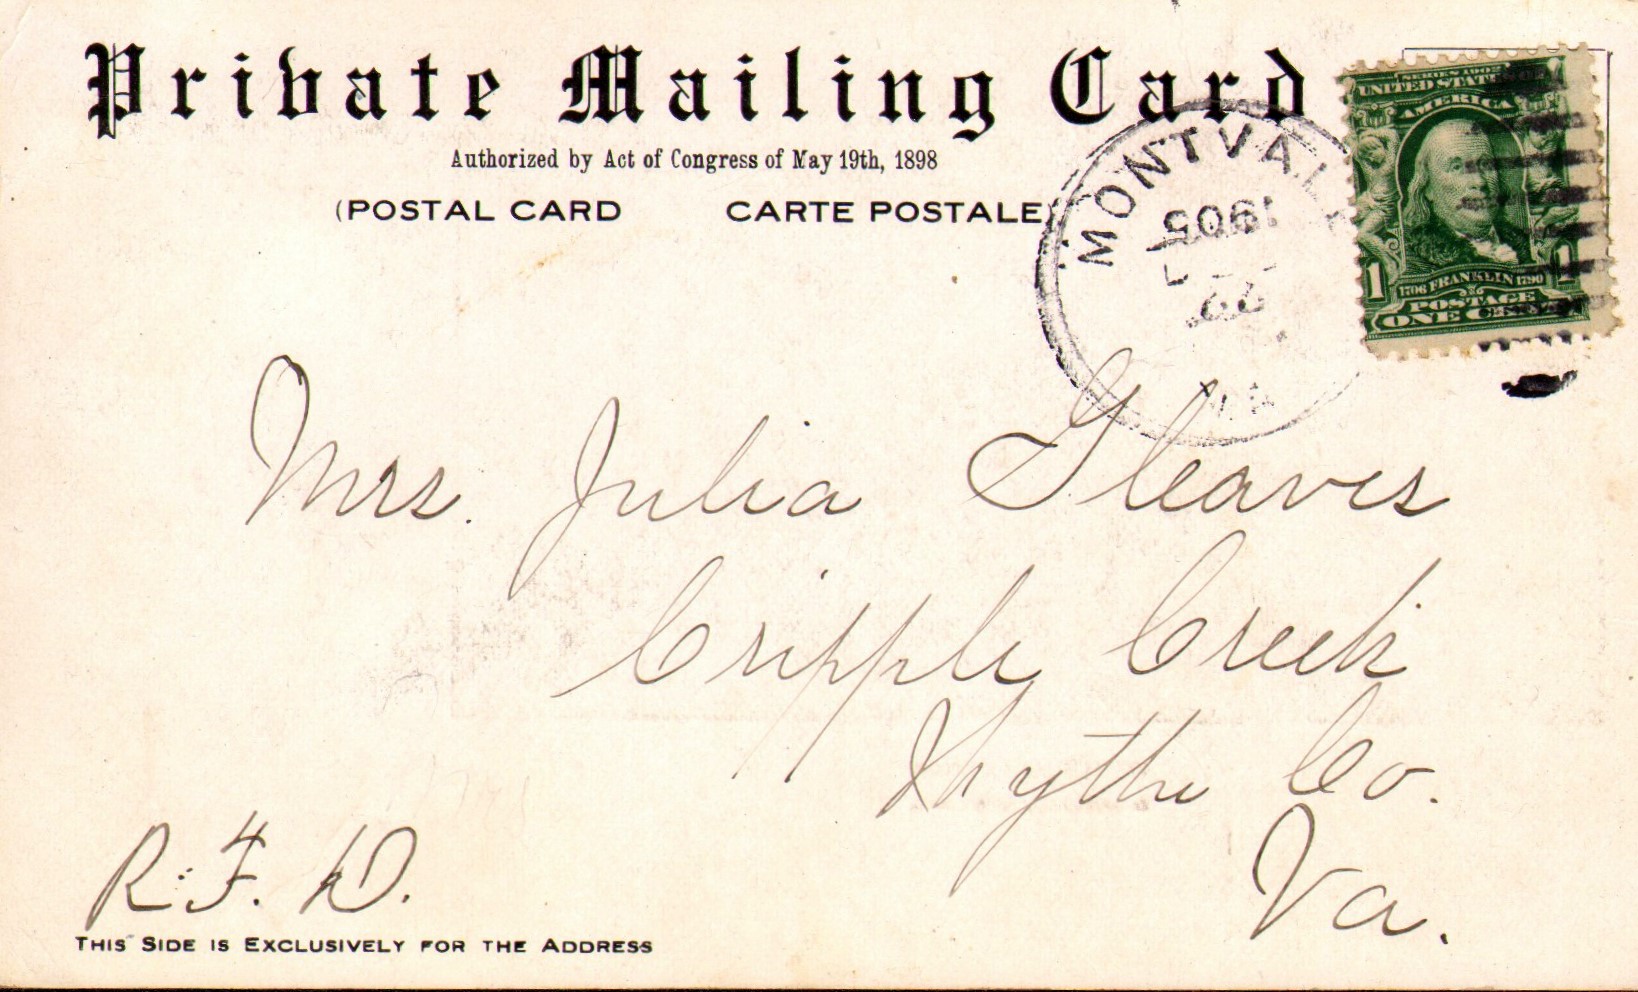 Private Mailing Card
Authorized by Act of Congress of May 19th, 1898
(POSTAL CARD CARTE POSTALE)
MONTVALE
1905
VA
SERIES 1902
UNITED STATES OF
AMERICA
1 1
1706 FRANKLIN 1790
POSTAGE
ONE CENT
Mrs. Julia Gleaves
Cripple Creek
Wythe Co.
Va.
R.F.D.
THIS SIDE IS EXCLUSIVELY FOR THE ADDRESS